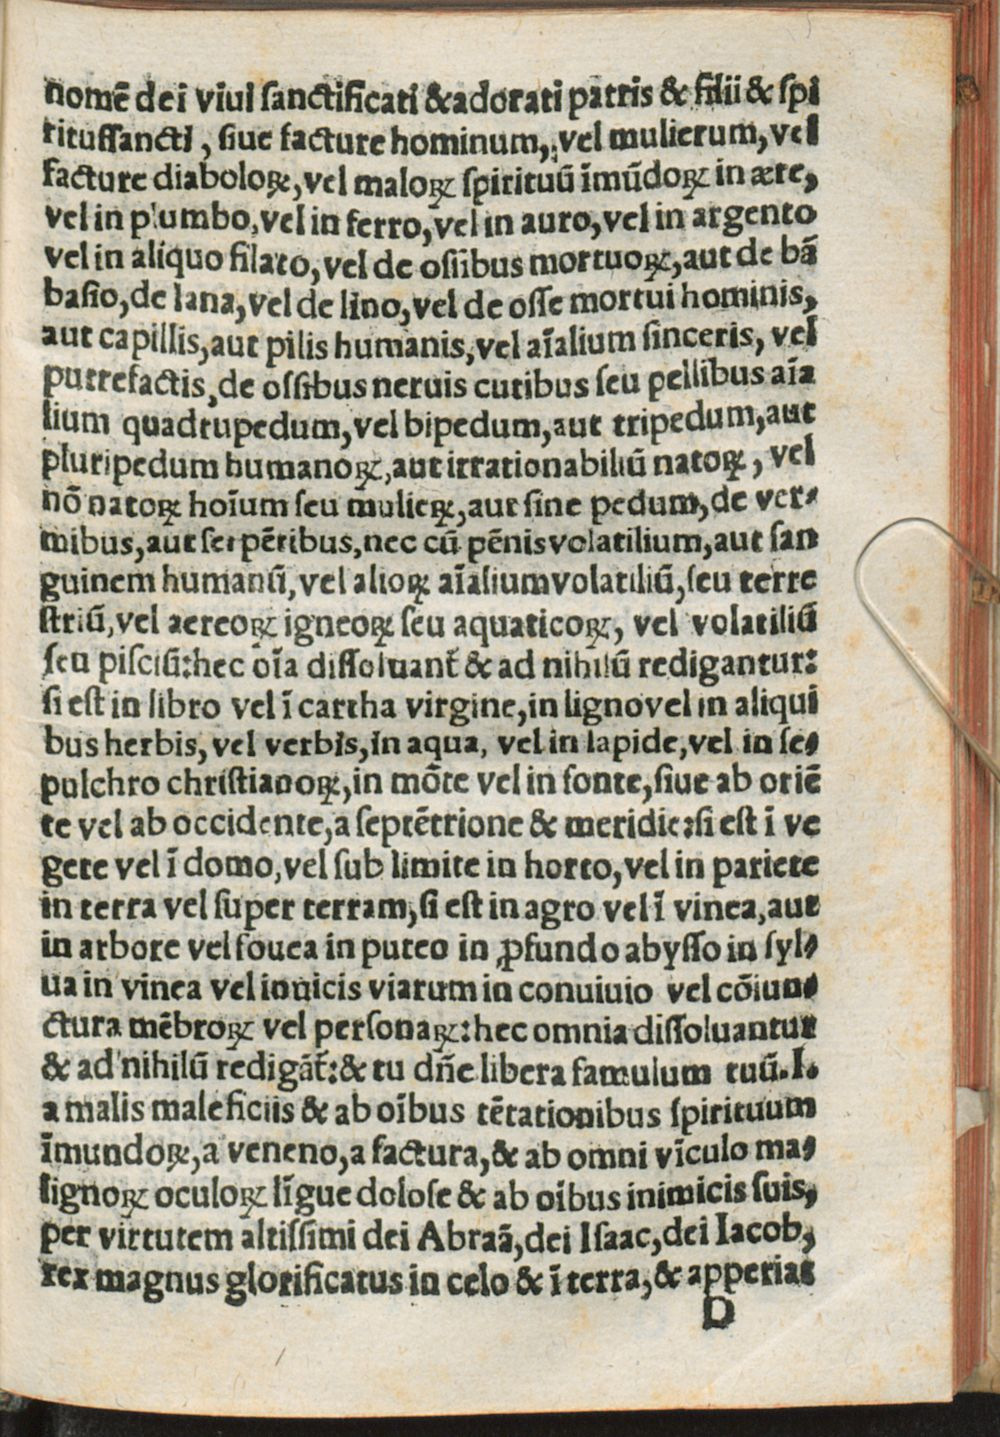 nomē dei viui sanctificati & adorati patris & filii & spi
ritussancti, siue facture hominum, vel mulierum, vel
facture diaboloꝝ, vel maloꝝ spirituū īmūdoꝝ in ære,
vel in plumbo, vel in ferro, vel in auro, vel in argento
vel in aliquo filato, vel de ossibus mortuoꝝ, aut de bā
basio, de lana, vel de lino, vel de osse mortui hominis,
aut capillis, aut pilis humanis, vel aīalium sinceris, vel
putrefactis, de ossibus neruis cutibus seu pellibus aīa
lium quadrupedum, vel bipedum, aut tripedum, aut
pluripedum humanoꝝ, aut irrationabiliū natoꝝ, vel
nō natoꝝ hoīum seu mulieꝝ, aut sine pedum, de ver⸗
mibus, aut serpētibus, nec cū pēnis volatilium, aut san
guinem humanū, vel alioꝝ aīalium volatiliū, seu terre
striū, vel aereoꝝ igneoꝝ seu aquaticoꝝ, vel volatiliū
seu pisciū: hec oīa dissoluant̄ & ad nihilū redigantur:
si est in libro vel ī cartha virgine, in ligno vel in aliqui
bus herbis, vel verbis, in aqua, vel in lapide, vel in se⸗
pulchro christianoꝝ, in mōte vel in fonte, siue ab oriē
te vel ab occidente, a septētrione & meridie: si est ī ve
gete vel ī domo, vel sub limite in horto, vel in pariete
in terra vel super terram, si est in agro vel ī vinea, aut
in arbore vel fouea in puteo in ꝓfundo abysso in syl⸗
ua in vinea vel in uicis viarum in conuiuio vel cōiun⸗
ctura mēbroꝝ vel personaꝝ: hec omnia dissoluantur
& ad nihilū redigāt̄: & tu dn̄e libera famulum tuū. I.
a malis maleficiis & ab oībus tētationibus spirituum
īmundoꝝ, a veneno, a factura, & ab omni vīculo ma⸗
lignoꝝ oculoꝝ līgue dolose & ab oībus inimicis suis,
per virtutem altissimi dei Abraā, dei Isaac, dei Iacob,
rex magnus glorificatus in celo & ī terra, & apperiat
D